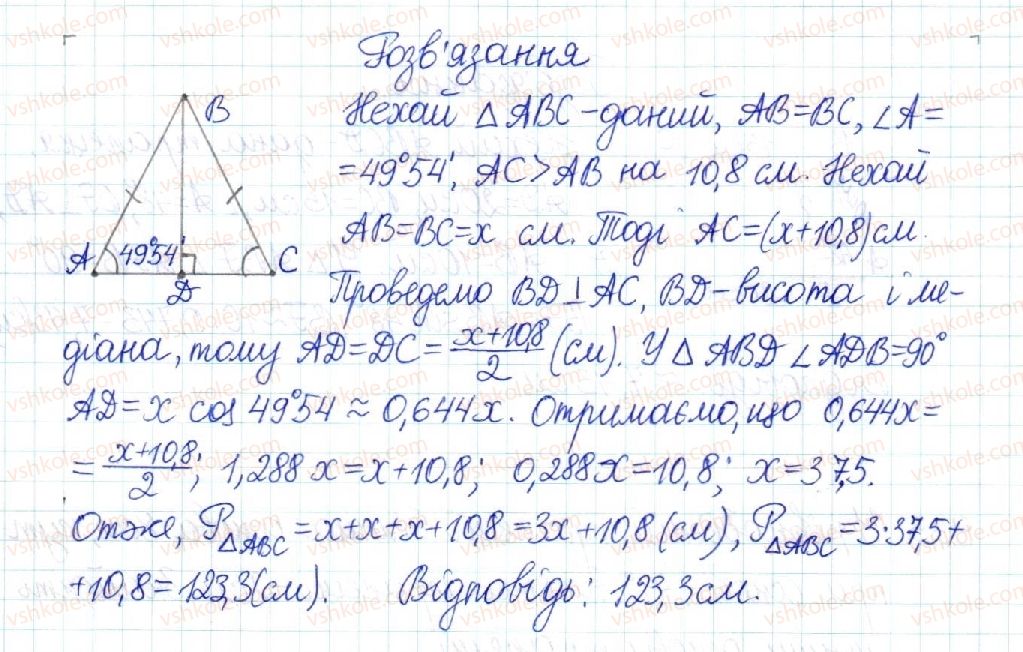 Розв'язання
B
Нехай △ABC - даний, AB=BC, ∠A=
=49°54', AC>AB на 10,8 см. Нехай
AB=BC=x см. Тоді AC=(x+10,8)см.
A 49°54' C
D
Проведемо BD⊥AC, BD-висота і ме-
діана, тому AD=DC=\frac{x+10,8}{2} (см). У △ABD ∠ADB=90°
AD=x cos 49°54 ≈ 0,644x. Отримаємо, що 0,644x=
=\frac{x+10,8}{2}; 1,288x=x+10,8; 0,288x=10,8; x=37,5.
Отже, P△ABC=x+x+x+10,8=3x+10,8 (см), P△ABC=3·37,5+
+10,8=123,3(см). Відповідь: 123,3см.
vshkole.com